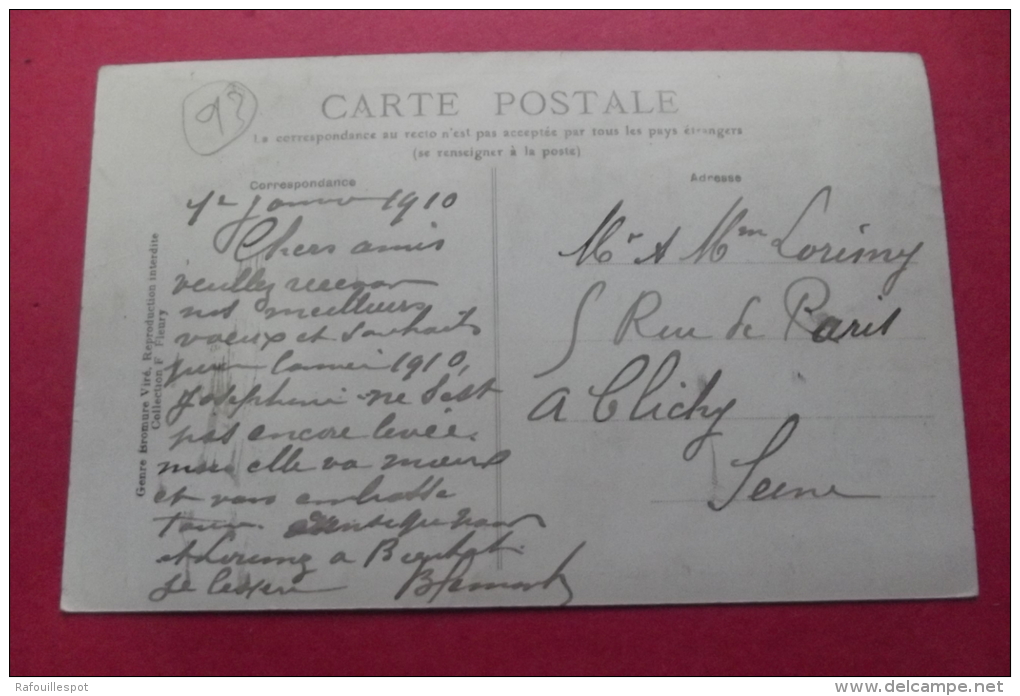 93
CARTE POSTALE
La correspondance au recto n'est pas acceptée par tous les pays étrangers
(se renseigner à la poste)
Correspondance
Adresse
1er Janvier 1910
Chers amis
veuillez recevoir
nos meilleurs
voeux et souhaits
pour l'année 1910,
Josephine ne s'est
pas encore levée.
mais elle va mieux
et vous embrasse
tous. ainsi que nous
et Lorimy a Bientot
je l'espère
Mr & Mme Lorimy
5 Rue de Paris
a Clichy
Seine
Genre Bromure Viré, Reproduction interdite
Collection F. Fleury
Rafouillespot
www.delcampe.net